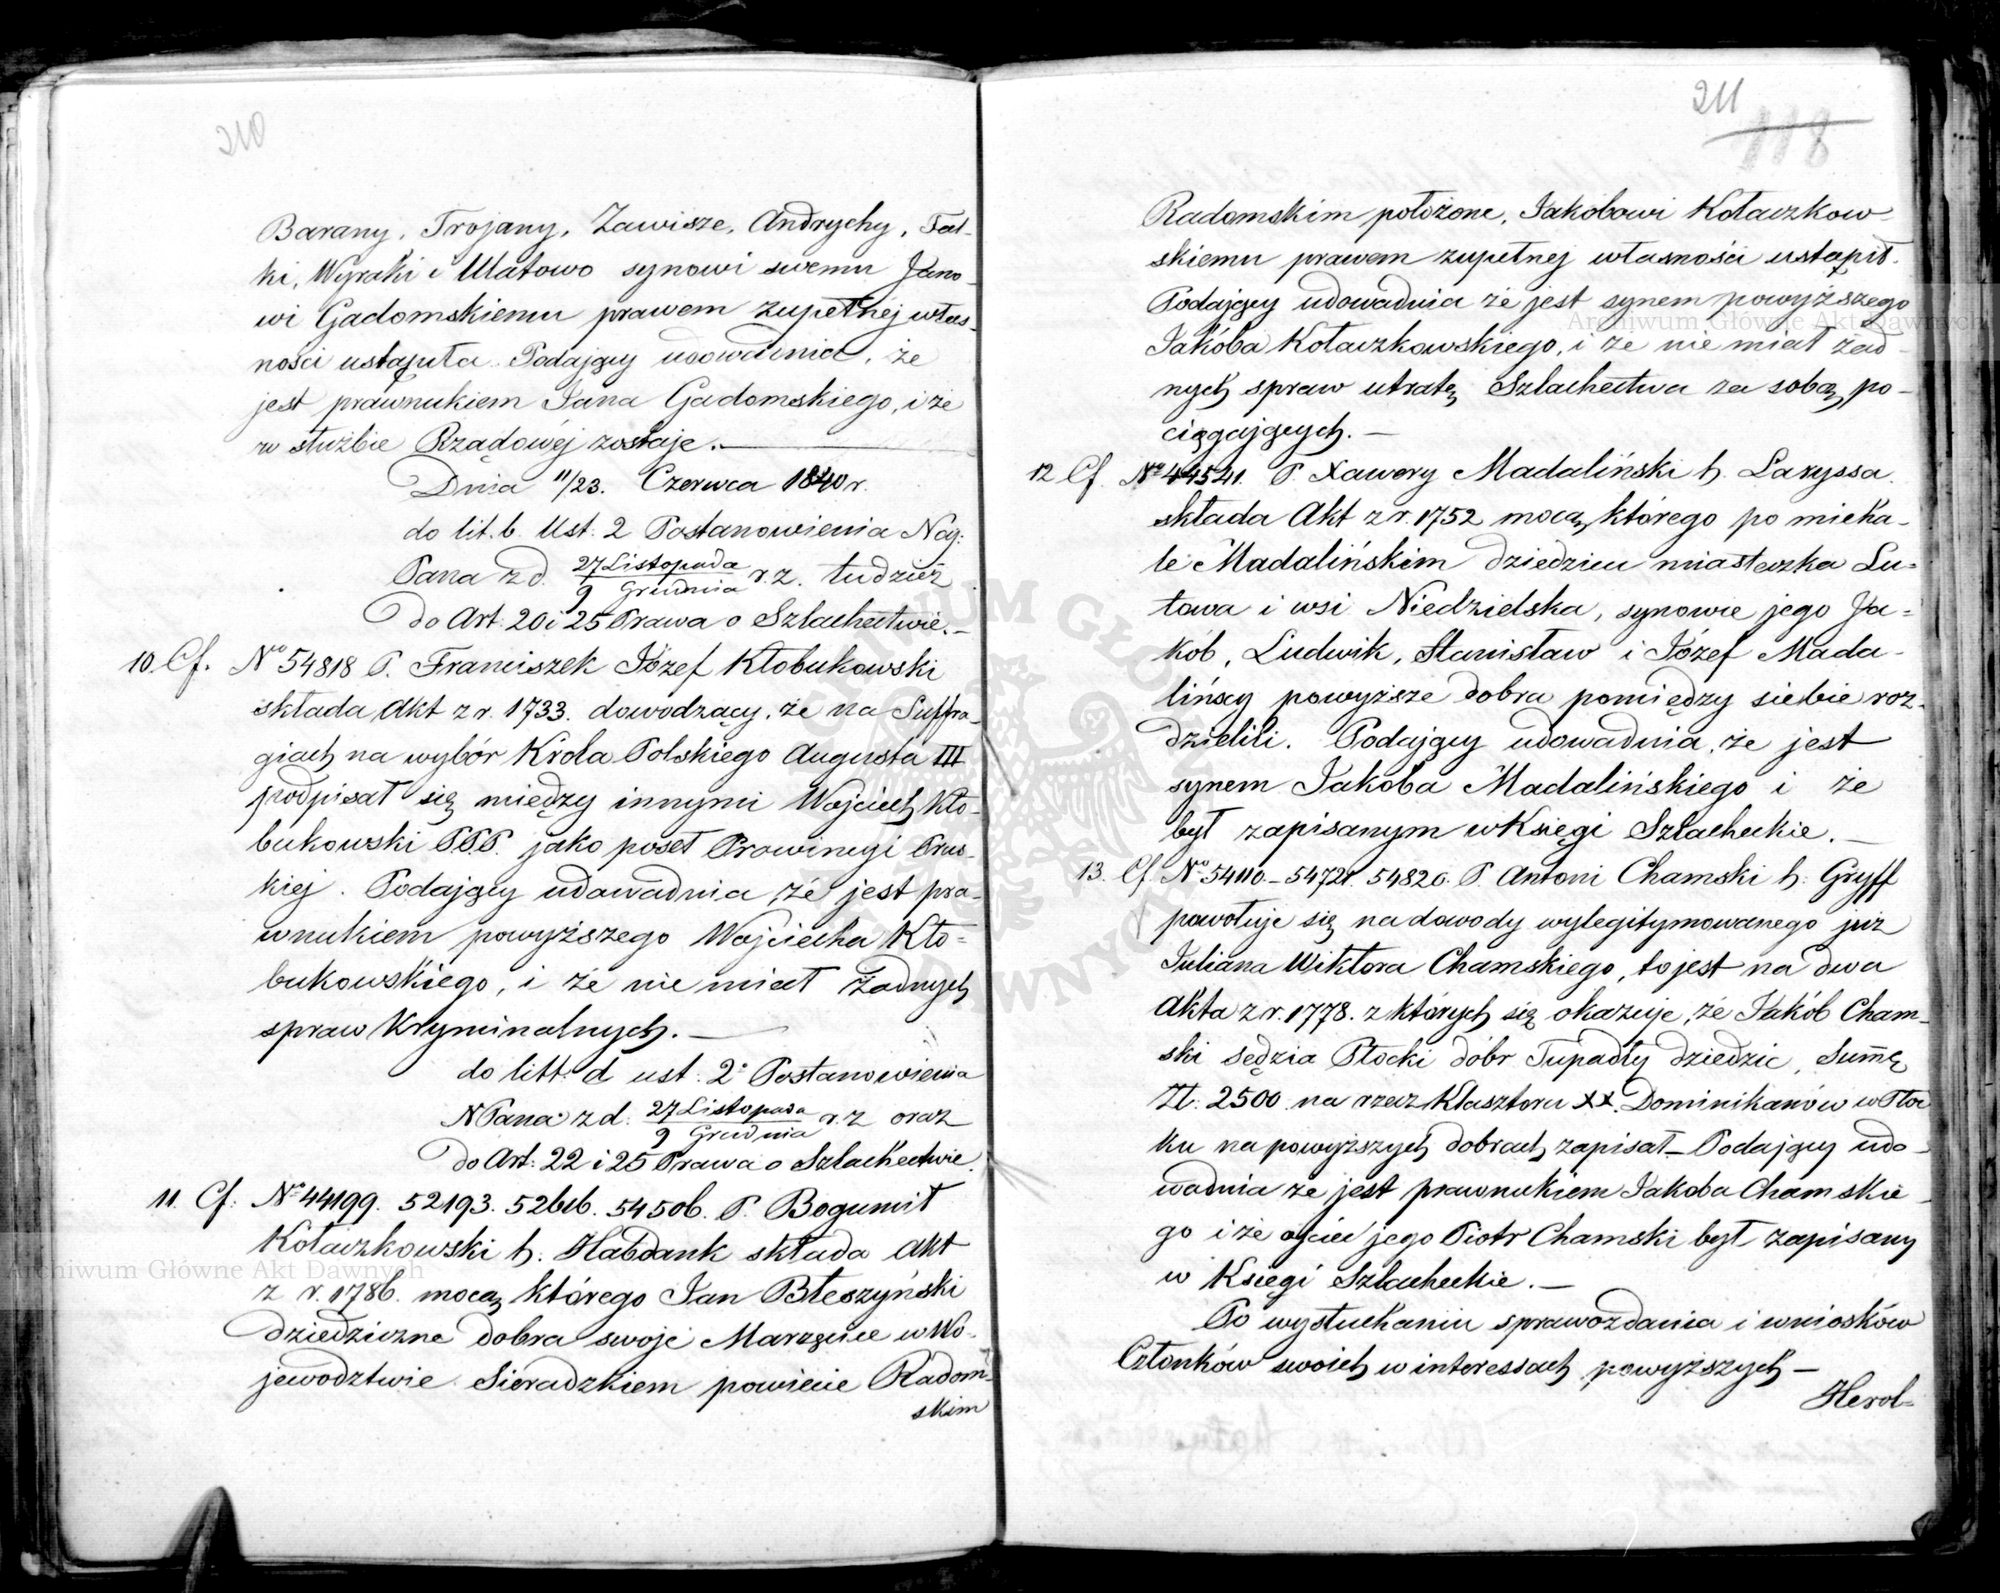 210
Barany, Trojany, Zawisze, Andrychy, Fal-
ki, Wyraki i Ulatowo synowi swemu Jano-
wi Gadomskiemu prawem zupełnej włas-
ności ustąpiła. Podający udowadnia, że
jest prawnukiem Jana Gadomskiego, i że
w służbie Rządowéj zostaje.—
Dnia 11/23. Czerwca 1840 r.
do lit. b. Ust: 2 Postanowienia Naj:
Pana z d. 27 Listopada / 9 Grudnia r. z. tudzież
do Art: 20 i 25 Prawa o Szlachectwie.—
10. Cf. No 54818 P. Franciszek Józef Kłobukowski
składa Akt z r. 1733. dowodzący, że na Suffra-
giach na wybór Krola Polskiego Augusta III
podpisał się między innymi Wojciech Kło-
bukowski PPP. jako poseł Prowincyi Prus-
kiej. Podający udowadnia, że jest pra-
wnukiem powyższego Wojciecha Kło=
bukowskiego, i że nie miał żadnych
spraw Kryminalnych.—
do litt: d ust: 2º Postanowienia
N Pana z d: 27 Listopada / 9 Grudnia r. z oraz
do Art: 22 i 25 Prawa o Szlachectwie.
11. Cf: No 44199. 52193. 52616. 54506. P. Bogumił
Kołaczkowski h. Habdank składa Akt
z r. 1786. mocą którego Jan Błeszyński
dziedziczne dobra swoje Marzęcice w Wo-
jewodztwie Sieradzkiem powiecie Radom-
skim
211
118
Radomskim położone, Jakóbowi Kołaczkow-
skiemu prawem zupełnej własności ustąpił.
Podający udowadnia że jest synem powyższego
Jakóba Kołaczkowskiego, i że nie miał żad-
nych spraw utratę Szlachectwa za sobą po-
ciągających.—
12 Cf. No 44541. P. Xawery Madaliński h. Laryssa.
składa Akt z r. 1752 mocą którego po micha-
le Madalińskim dziedzicu miasteczka Lu=
towa i wsi Niedzielska, synowie jego Ja=
kób, Ludwik, Stanisław i Józef Mada-
lińscy powyższe dobra pomiędzy siebie roz-
dzielili. Podający udowadnia, że jest
synem Jakóba Madalińskiego i że
był zapisanym w Księgi Szlacheckie.—
13. Cf. No 54110–54721. 54820. P. Antoni Chamski h: Gryff
powołuje się na dowody wylegitymowanego już
Juliana Wiktora Chamskiego, to jest na dwa
Akta z r. 1778. z których się okazuje, że Jakób Cham-
ski sędzia Płocki dóbr Tupadły dziedzic, Sum̃ę
Zł: 2500 na rzecz Klasztoru XX. Dominikanów w Płoc
ku na powyższych dobrach zapisał– Podający udo-
wadnia że jest prawnukiem Jakóba Chamskie-
go i że ojciec jego Piotr Chamski był zapisany
w Księgi Szlacheckie.—
Po wysłuchaniu sprawozdania i wniosków
Członków swoich w interessach powyższych —
Herol-
Archiwum Główne Akt Dawnych
Archiwum Główne Akt Dawnych